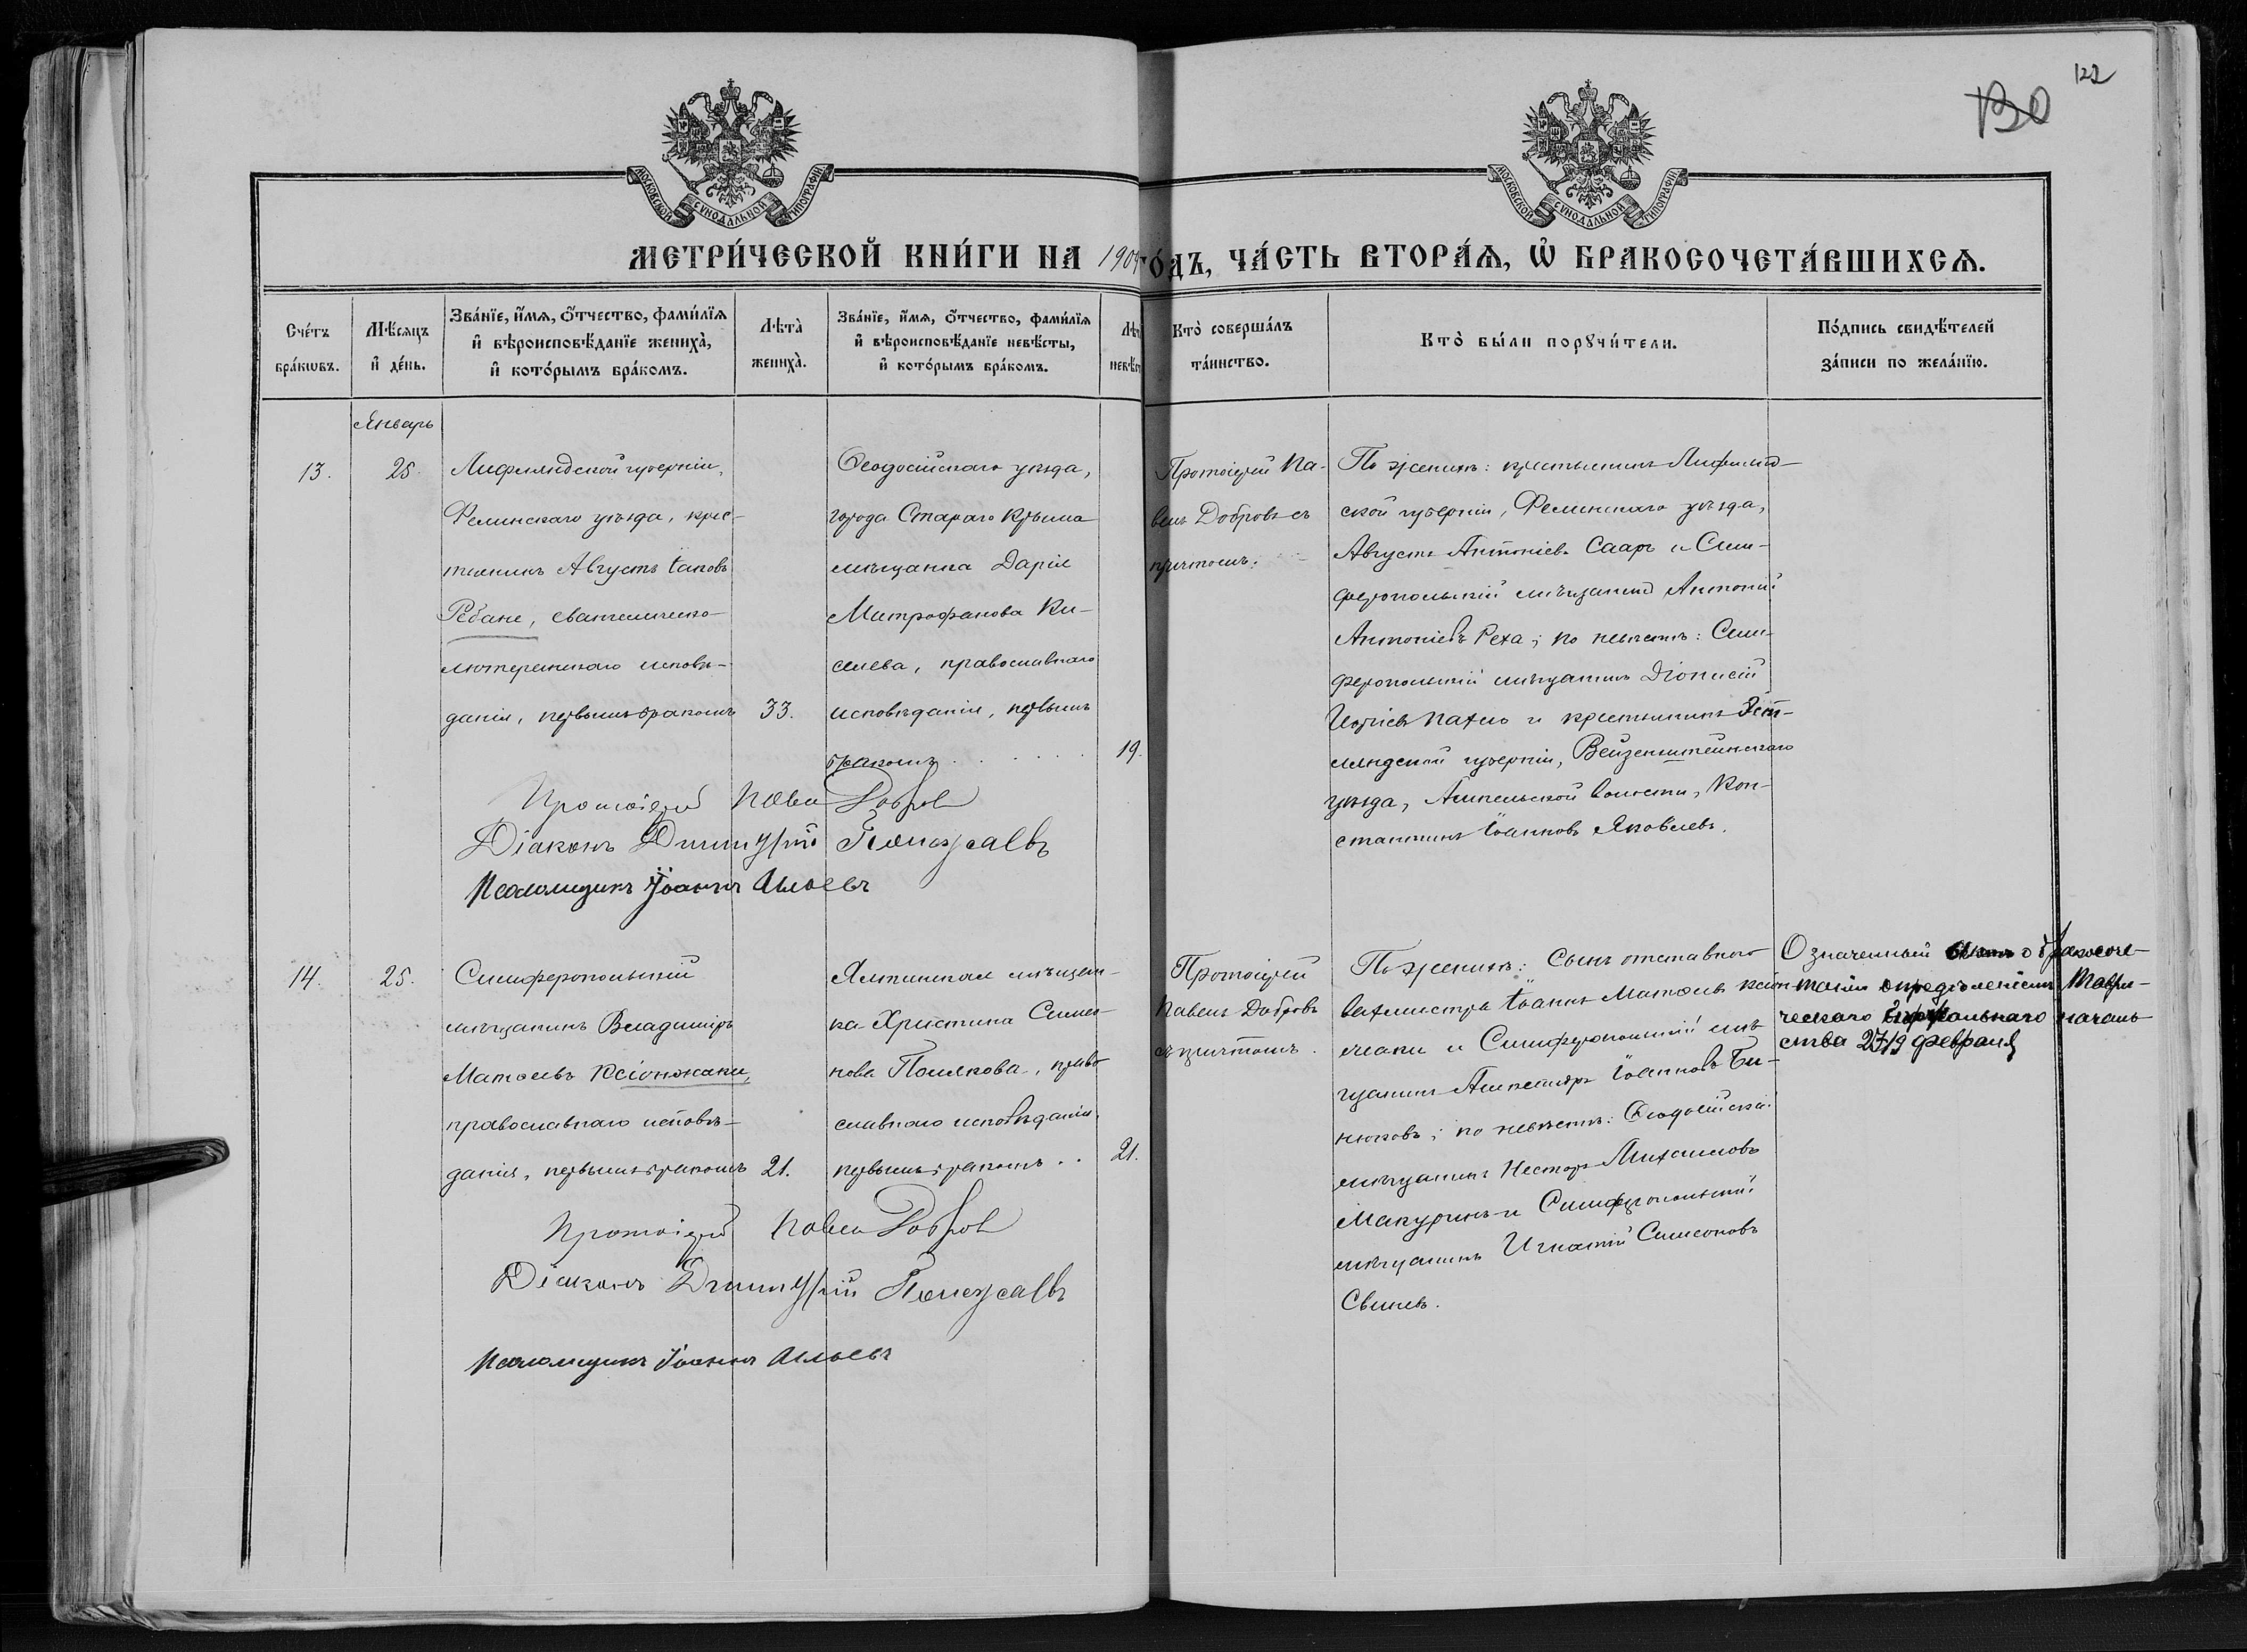 122
130
МОСКОВСКОЙ СѴНОДАЛЬНОЙ ТИПОГРАФІИ
МОСКОВСКОЙ СѴНОДАЛЬНОЙ ТИПОГРАФІИ
МЕТРИ́ЧЕСКОЙ КНИ́ГИ НА 1909 ГО́ДЪ, ЧА́СТЬ ВТОРА́Ѧ, Ѽ БРАКОСОЧЕТА́ВШИХСѦ.
Сче́тъ
бра́кѡвъ.
Мѣ́сяцъ
и҆ де́нь.
Зва́нїе, и҆́мѧ, ѻ҆́тчество, фами́лїѧ
и҆ вѣроисповѣ́данїе жениха̀,
и҆ кото́рымъ бра́комъ.
Лѣта̀
жениха̀.
Зва́нїе, и҆́мѧ, ѻ҆́тчество, фами́лїѧ
и҆ вѣроисповѣ́данїе невѣ́сты,
и҆ кото́рымъ бра́комъ.
Лѣт
невѣс
Кто̀ соверша́лъ
та́инство.
Кто̀ бы́ли порꙋчи́тели.
По́дпись свидѣ́телей
за́писи по жела́нїю.
Январь
13.
25.
Лифляндской губерніи,
Фелинскаго уѣзда, крес-
тьянинъ Августъ Іаковъ
Ребане, евангелическо-
лютеранскаго исповѣ-
данія, первымъ бракомъ
33.
Ѳеодосійскаго уѣзда,
города Стараго Крыма
мѣщанка Дарія
Митрофанова Ки-
селева, православнаго
исповѣданія, первымъ
бракомъ . . . . .
19.
Протоіерей Па-
велъ Добровъ съ
причтомъ.
По женихѣ: крестьянинъ Лифлянд-
ской губерніи, Фелинскаго уѣзда,
Августъ Антоніевъ Сааръ и Сим-
феропольскій мѣщанинъ Антоній
Антоніевъ Реха; по невѣстѣ: Сим-
феропольскій мѣщанинъ Діонисій
Пахно и крестьянинъ Эст-
ляндской губерніи, Вейзенштейнскаго
уѣзда, Ампельской волости, Кон-
стантинъ Іоанновъ Яковлевъ.
Протоіерей Павелъ Добровъ
Діаконъ Димитрій
Псаломщикъ Іоаннъ Ильевъ
14.
25.
Симферопольскій
мѣщанинъ Владиміръ
Матѳеевъ Ксіонжаки,
православнаго исповѣ-
данія, первымъ бракомъ
21.
Ялтинская мѣщан-
ка Христина Симео-
нова Полякова, право-
славнаго исповѣданія,
первымъ бракомъ . .
21.
Протоіерей
Павелъ Добровъ
съ причтомъ.
По женихѣ: Сынъ отставного
вахмистра Іоаннъ Матѳеевъ Ксіон-
жаки и Симферопольскій мѣ-
щанинъ Александръ Іоанновъ Би-
нюковъ; по невѣстѣ: Ѳеодосійскій
мѣщанинъ Несторъ Михаиловъ
Макуринъ и Симферопольскій
мѣщанинъ Игнатій Симеоновъ
Свиневъ.
Означенный о бракосоче-
таніи опредѣленіемъ Таври-
ческаго Епархіальнаго началь-
ства 27/19 февраля
Протоіерей Павелъ Добровъ
Діаконъ Димитрій
Псаломщикъ Іоаннъ Ильевъ